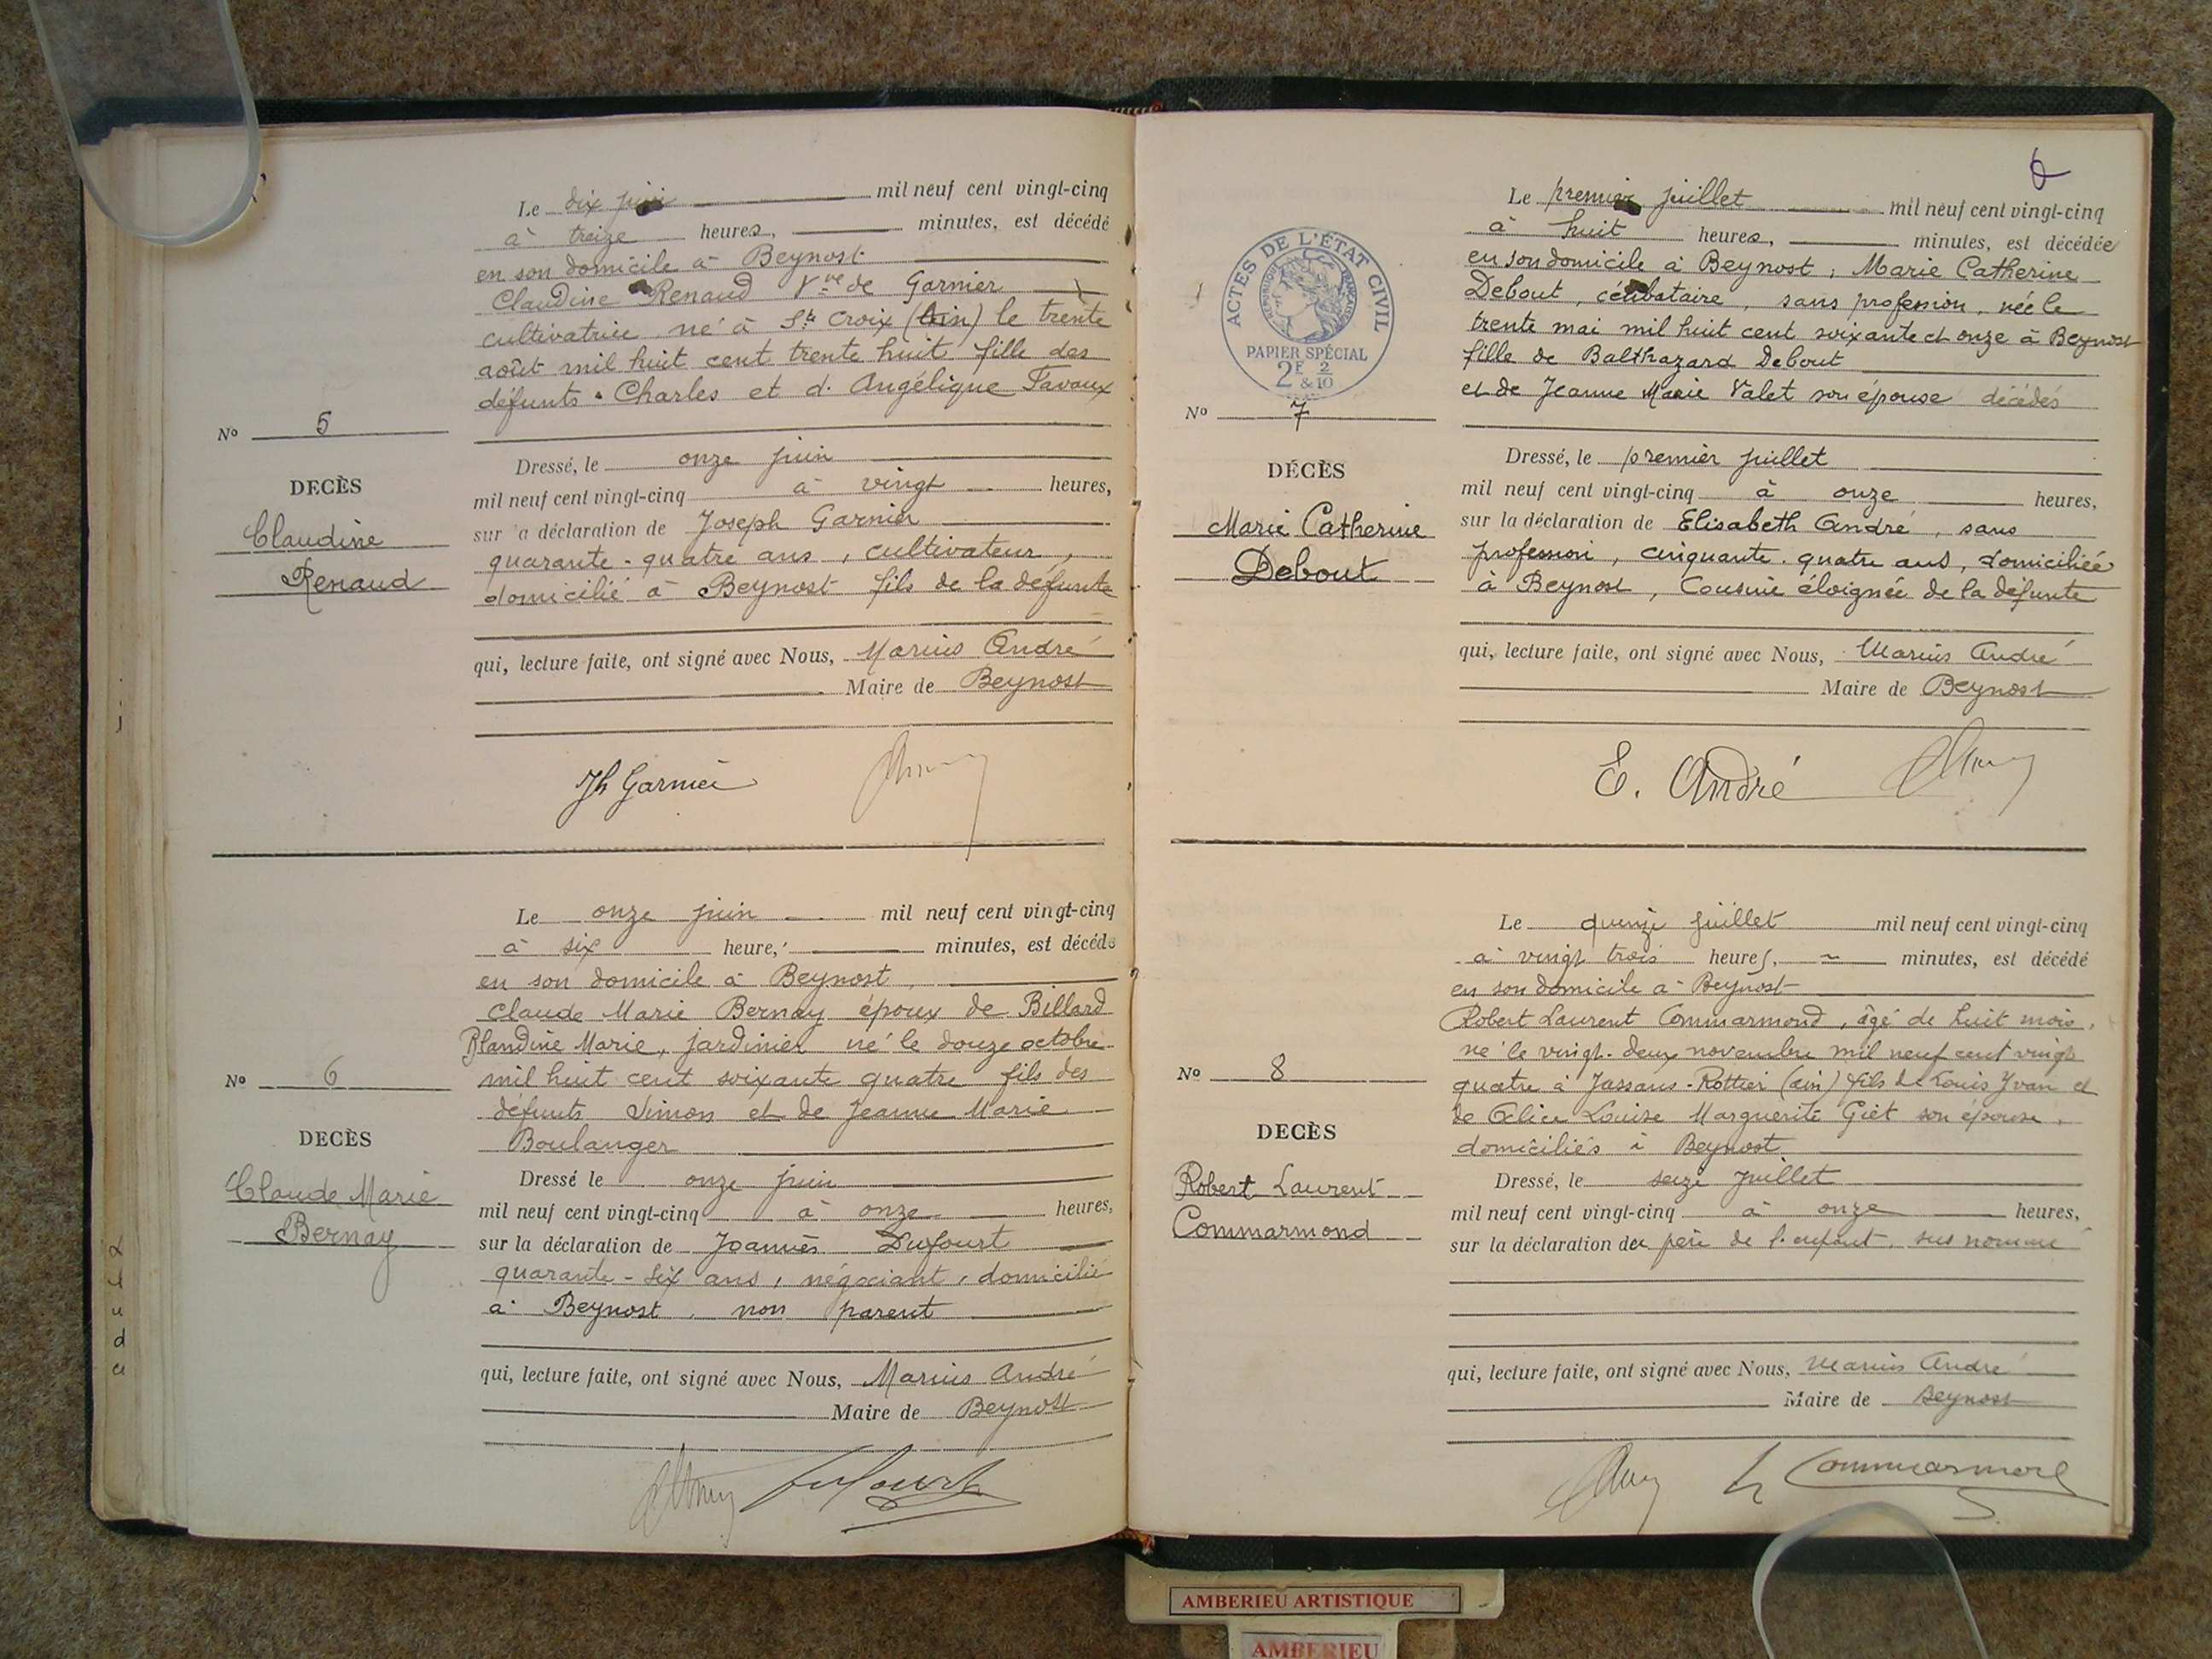 Le dix juin mil neuf cent vingt-cinq
à treize heures, minutes, est décédé
en son domicile à Beynost
Claudine Renaud Vve de Garnier
cultivatrice né à Ste Croix (Ain) le trente
août mil huit cent trente huit fille des
défunts Charles et d. Angélique Favaux
No 5
DECÈS
Claudine
Renaud
Dressé, le onze juin
mil neuf cent vingt-cinq à vingt heures,
sur la déclaration de Joseph Garnier
quarante-quatre ans, cultivateur,
domicilié à Beynost fils de la défunte
qui, lecture faite, ont signé avec Nous, Marius André
Maire de Beynost
Jh Garnier
Le onze juin mil neuf cent vingt-cinq
à six heure, minutes, est décédé
en son domicile à Beynost,
Claude Marie Bernay époux de Billard
Blandine Marie, jardinier né le douze octobre
mil huit cent soixante quatre fils des
défunts Simon et de Jeanne Marie
Boulanger
No 6
DECÈS
Claude Marie
Bernay
Dressé le onze juin
mil neuf cent vingt-cinq à onze heures,
sur la déclaration de Joannès Dufourt
quarante-six ans, négociant, domicilié
à Beynost, non parent
qui, lecture faite, ont signé avec Nous, Marius André
Maire de Beynost
Dufourt
6
Le premier juillet mil neuf cent vingt-cinq
à huit heures, minutes, est décédée
en son domicile à Beynost, Marie Catherine
Debout, célibataire, sans profession, née le
trente mai mil huit cent soixante et onze à Beynost
fille de Balthazard Debout
et de Jeanne Marie Valet son épouse décédés
ACTES DE L'ÉTAT CIVIL
RÉPUBLIQUE FRANÇAISE
PAPIER SPÉCIAL
2E 2 & 10
No 7
DÉCÈS
Marie Catherine
Debout
Dressé, le premier juillet
mil neuf cent vingt-cinq à onze heures,
sur la déclaration de Elisabeth André, sans
profession, cinquante-quatre ans, domiciliée
à Beynost, Cousine éloignée de la défunte
qui, lecture faite, ont signé avec Nous, Marius André
Maire de Beynost
E. André
Le quinze juillet mil neuf cent vingt-cinq
à vingt trois heures, minutes, est décédé
en son domicile à Beynost
Robert Laurent Commarmond, âgé de huit mois,
né le vingt-deux novembre mil neuf cent vingt
quatre à Jassans-Rottier (ain) fils de Louis Yvan et
de Alice Louise Marguerite Giet son épouse,
domiciliés à Beynost
No 8
DECÈS
Robert Laurent
Commarmond
Dressé, le seize juillet
mil neuf cent vingt-cinq à onze heures,
sur la déclaration du père de l'enfant, sus nommé
qui, lecture faite, ont signé avec Nous, Marius André
Maire de Beynost
L Commarmond
AMBERIEU ARTISTIQUE
AMBERIEU